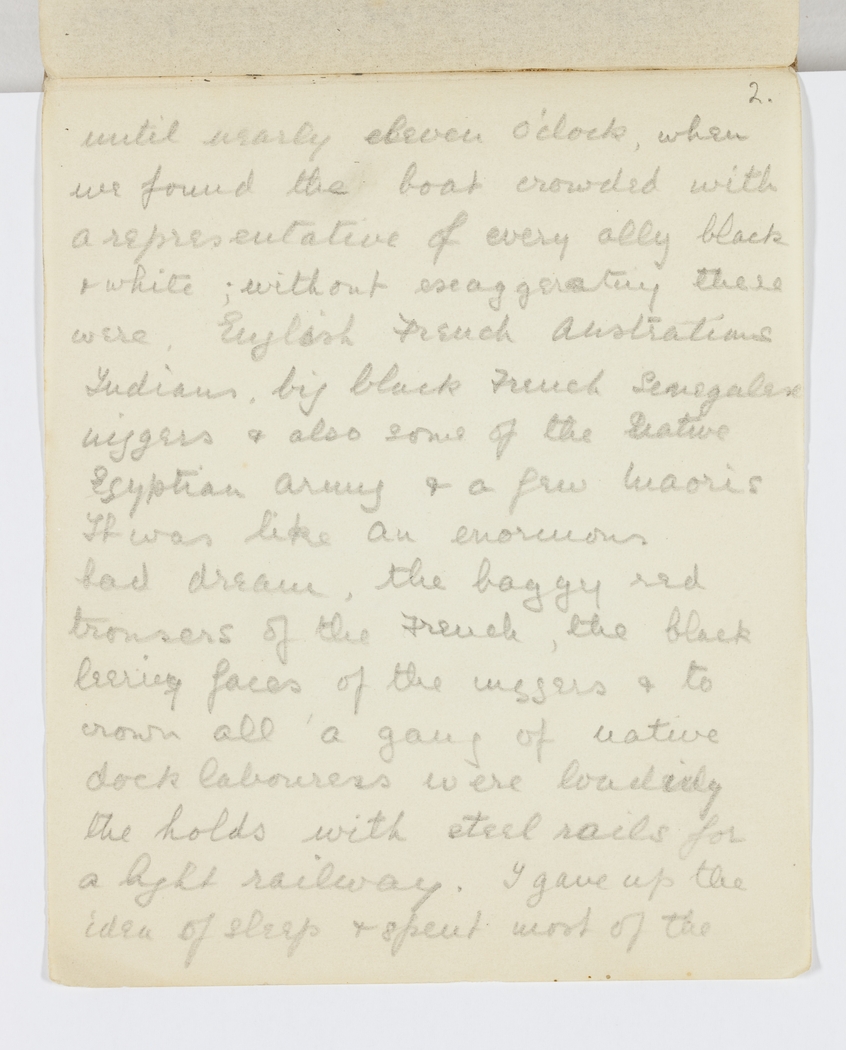 2.
until nearly eleven o'clock, when
we found the boat crowded with
a representative of every ally black
& white ; without exaggerating there
were, English French Australians
Indians, big black French Senegalese
niggers & also some of the Native
Egyptian army & a few Maoris
It was like an enormous
bad dream, the baggy red
trousers of the French, the black
leering faces of the niggers & to
crown all a gang of native
dock labourers were loading
the holds with steel rails for
a light railway. I gave up the
idea of sleep & spent most of the